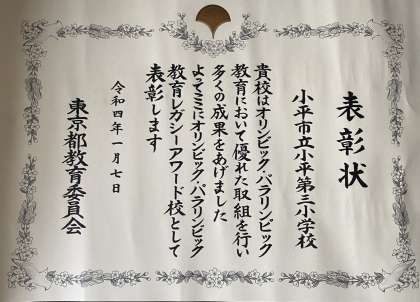 表彰状
小平市立小平第三小学校
貴校はオリンピック・パラリンピック
教育において優れた取組を行い
多くの成果をあげました
よってここにオリンピック・パラリンピック
教育レガシーアワード校として
表彰します
令和四年一月七日
東京都教育委員会